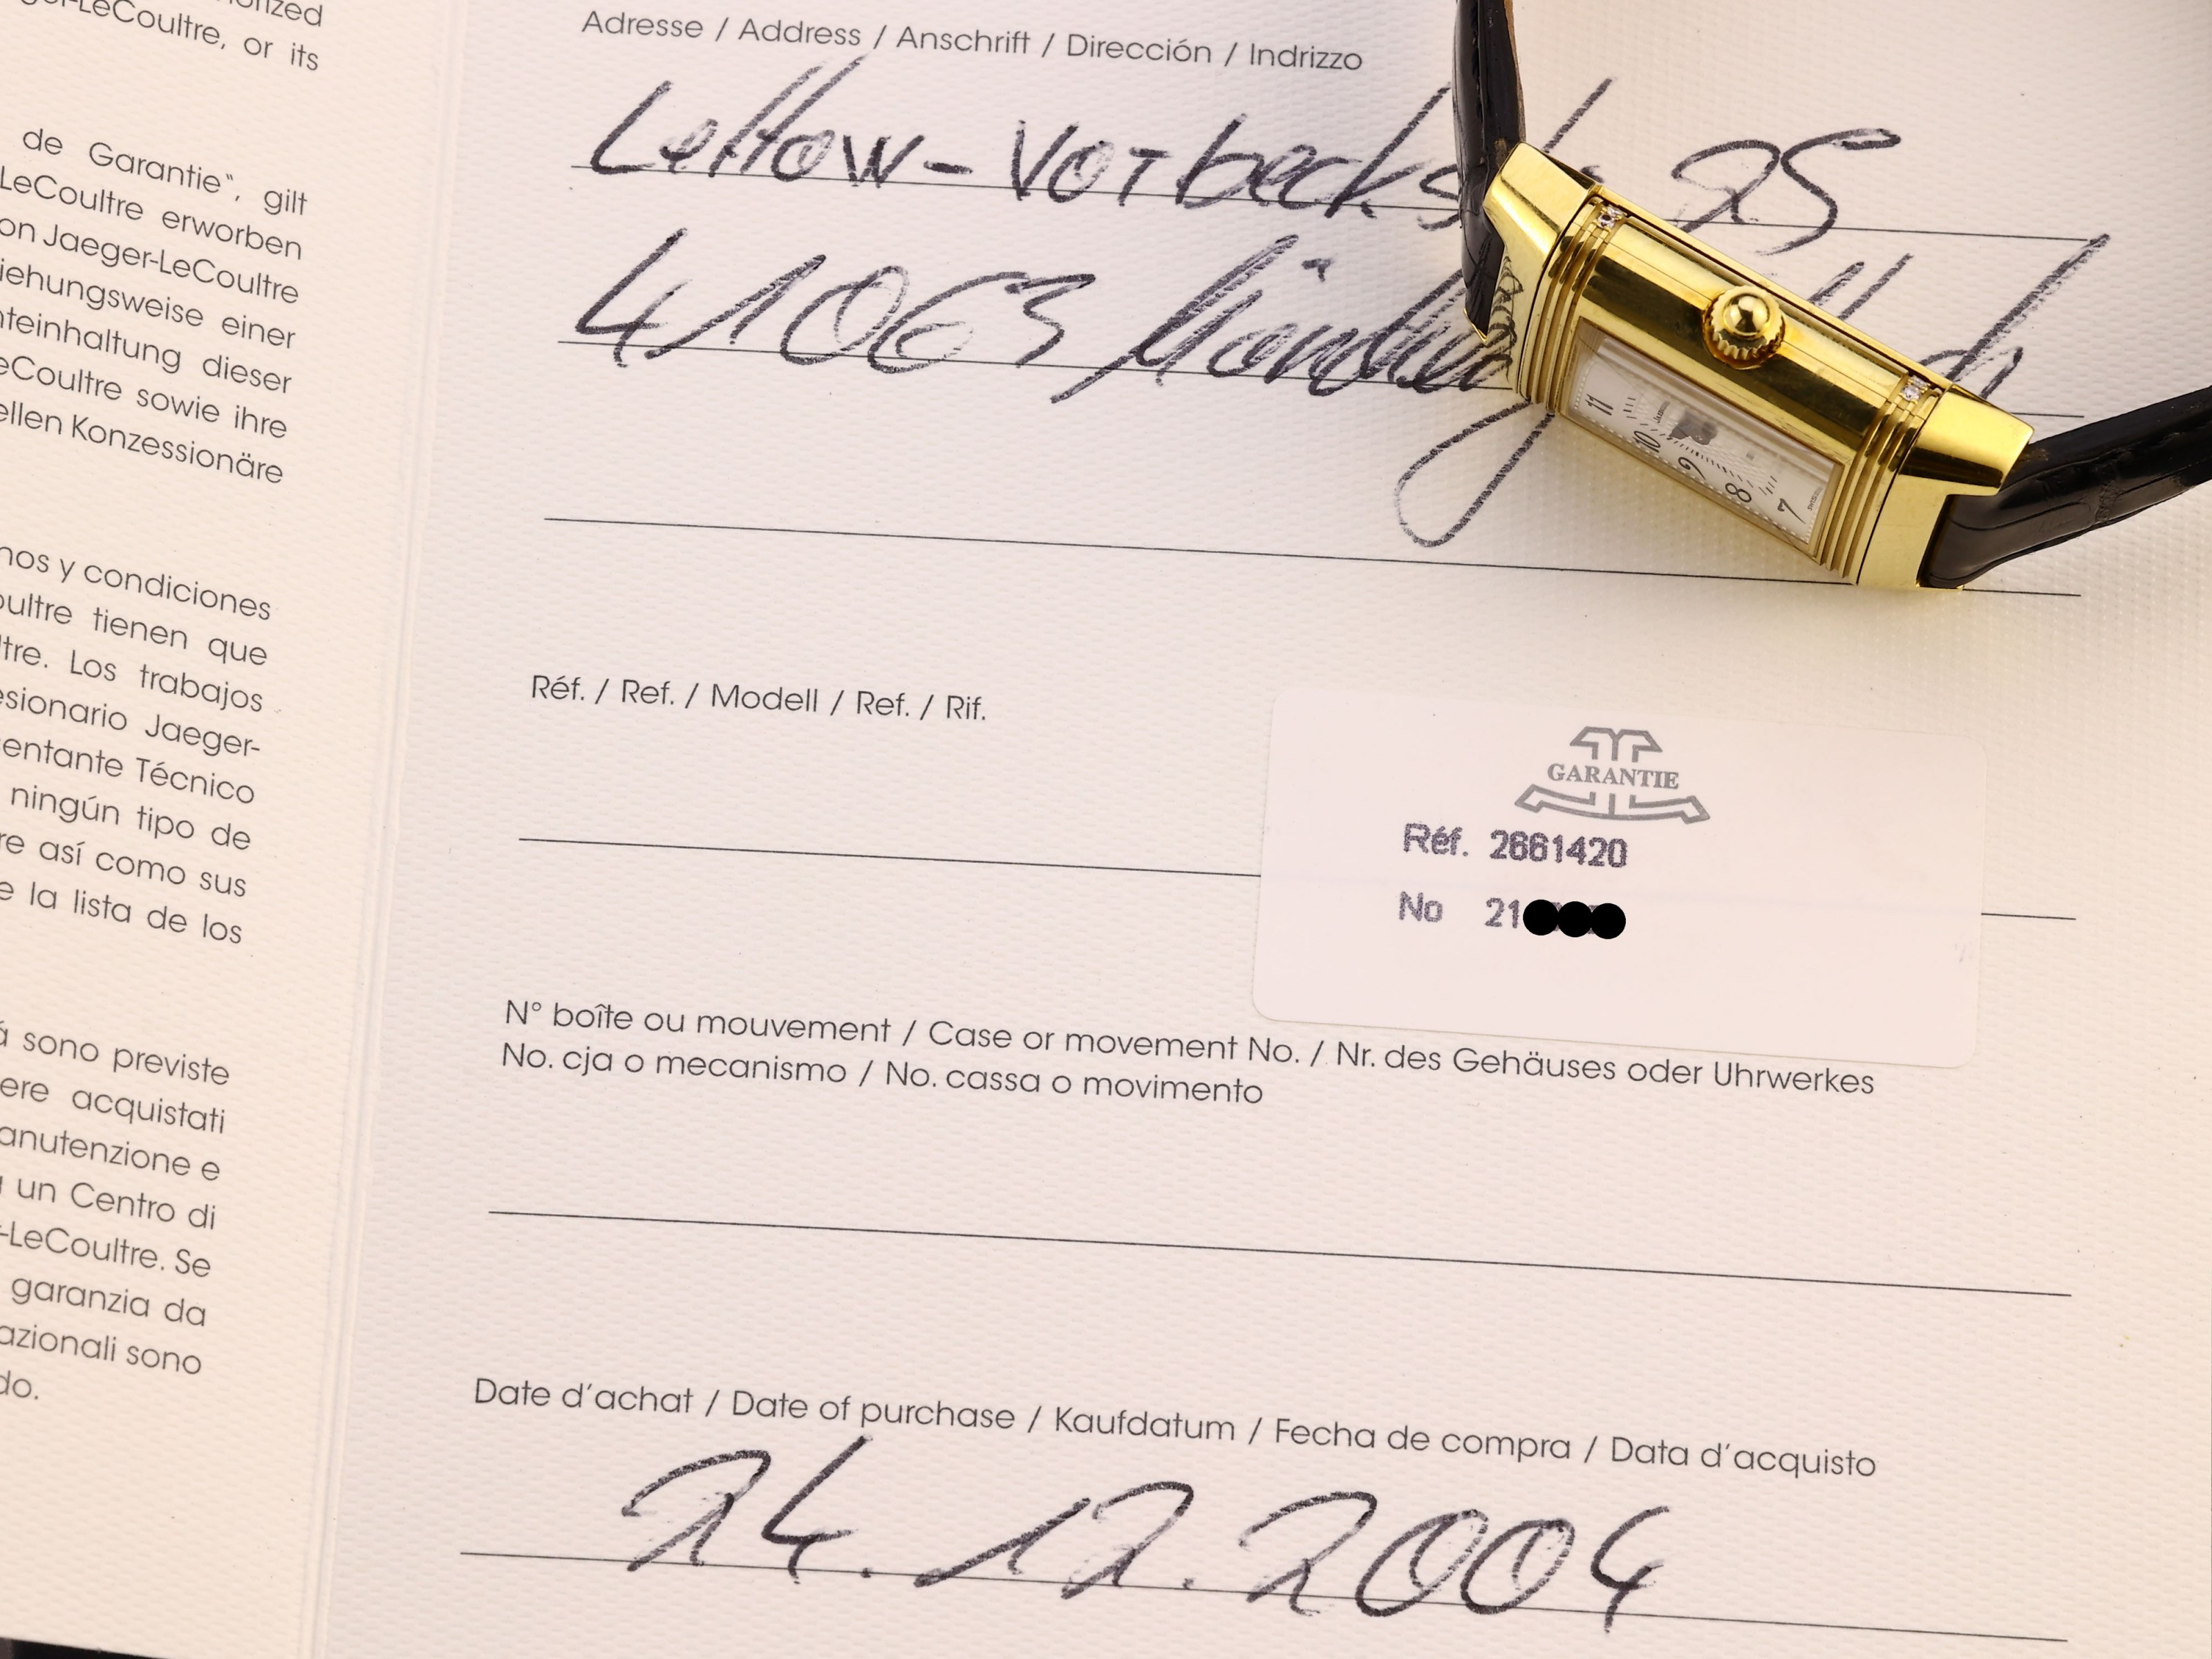 orized
ger-LeCoultre, or its
de Garantie", gilt
LeCoultre erworben
on Jaeger-LeCoultre
iehungsweise einer
teinhaltung dieser
eCoultre sowie ihre
ellen Konzessionäre
nos y condiciones
oultre tienen que
ltre. Los trabajos
esionario Jaeger-
sentante Técnico
ningún tipo de
re así como sus
e la lista de los
á sono previste
ere acquistati
anutenzione e
un Centro di
-LeCoultre. Se
garanzia da
azionali sono
do.
Adresse / Address / Anschrift / Dirección / Indrizzo
Lettow-Vorbeckst 25
41063 Möncheng
11 10 9 8 7
Réf. / Ref. / Modell / Ref. / Rif.
GARANTIE
Réf. 2661420
No 21
N° boîte ou mouvement / Case or movement No. / Nr. des Gehäuses oder Uhrwerkes
No. cja o mecanismo / No. cassa o movimento
Date d'achat / Date of purchase / Kaufdatum / Fecha de compra / Data d'acquisto
24.12.2004